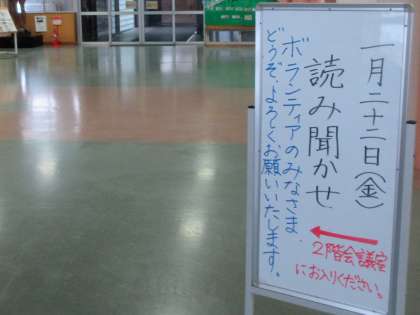 一月二十二日(金)
読み聞かせ
ボランティアのみなさま、
どうぞ、よろしくお願いいたします。
2階会議室
にお入りください。